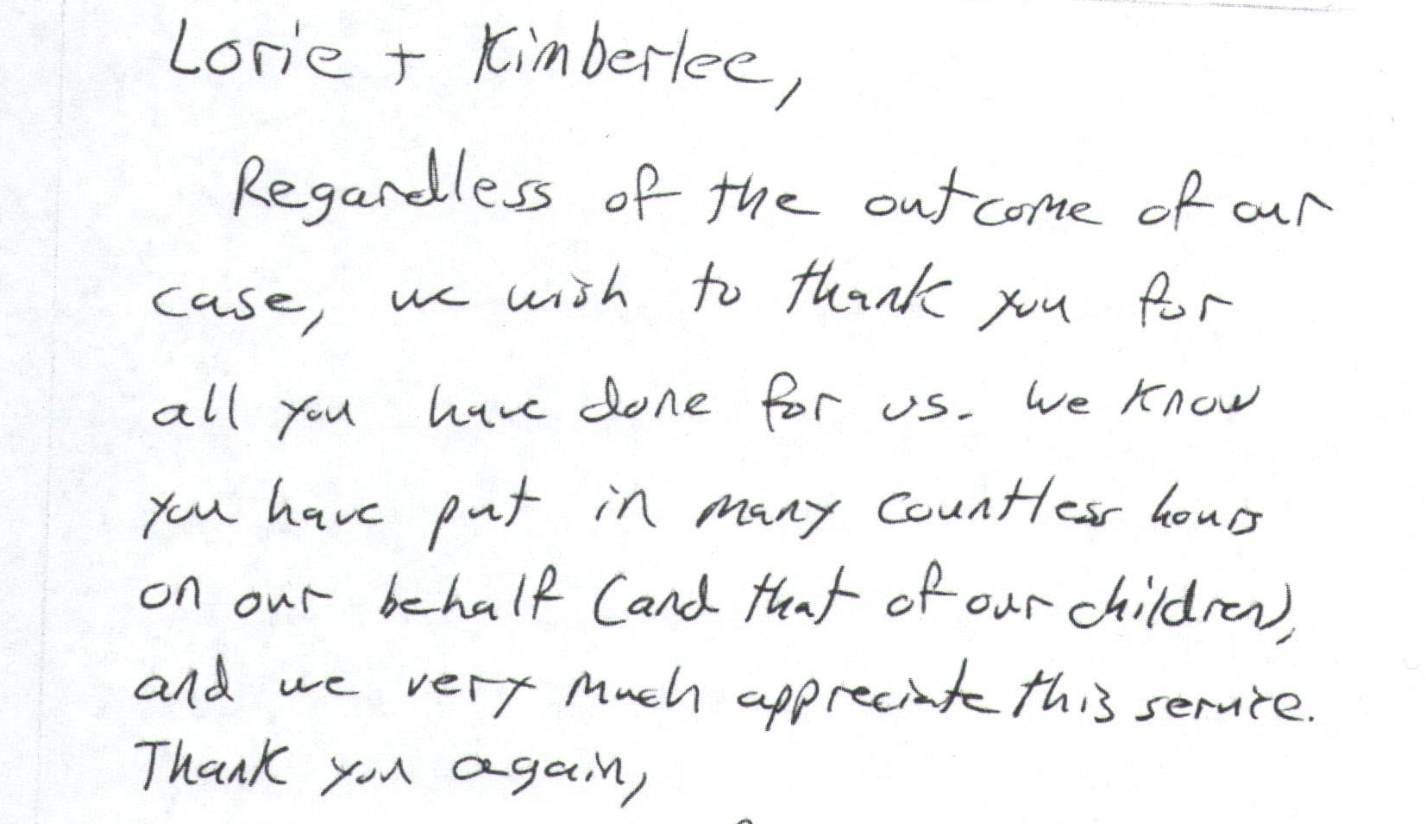 Lorie + Kimberlee,
Regardless of the outcome of our
case, we wish to thank you for
all you have done for us. We know
you have put in many countless hours
on our behalf (and that of our children),
and we very much appreciate this service.
Thank you again,